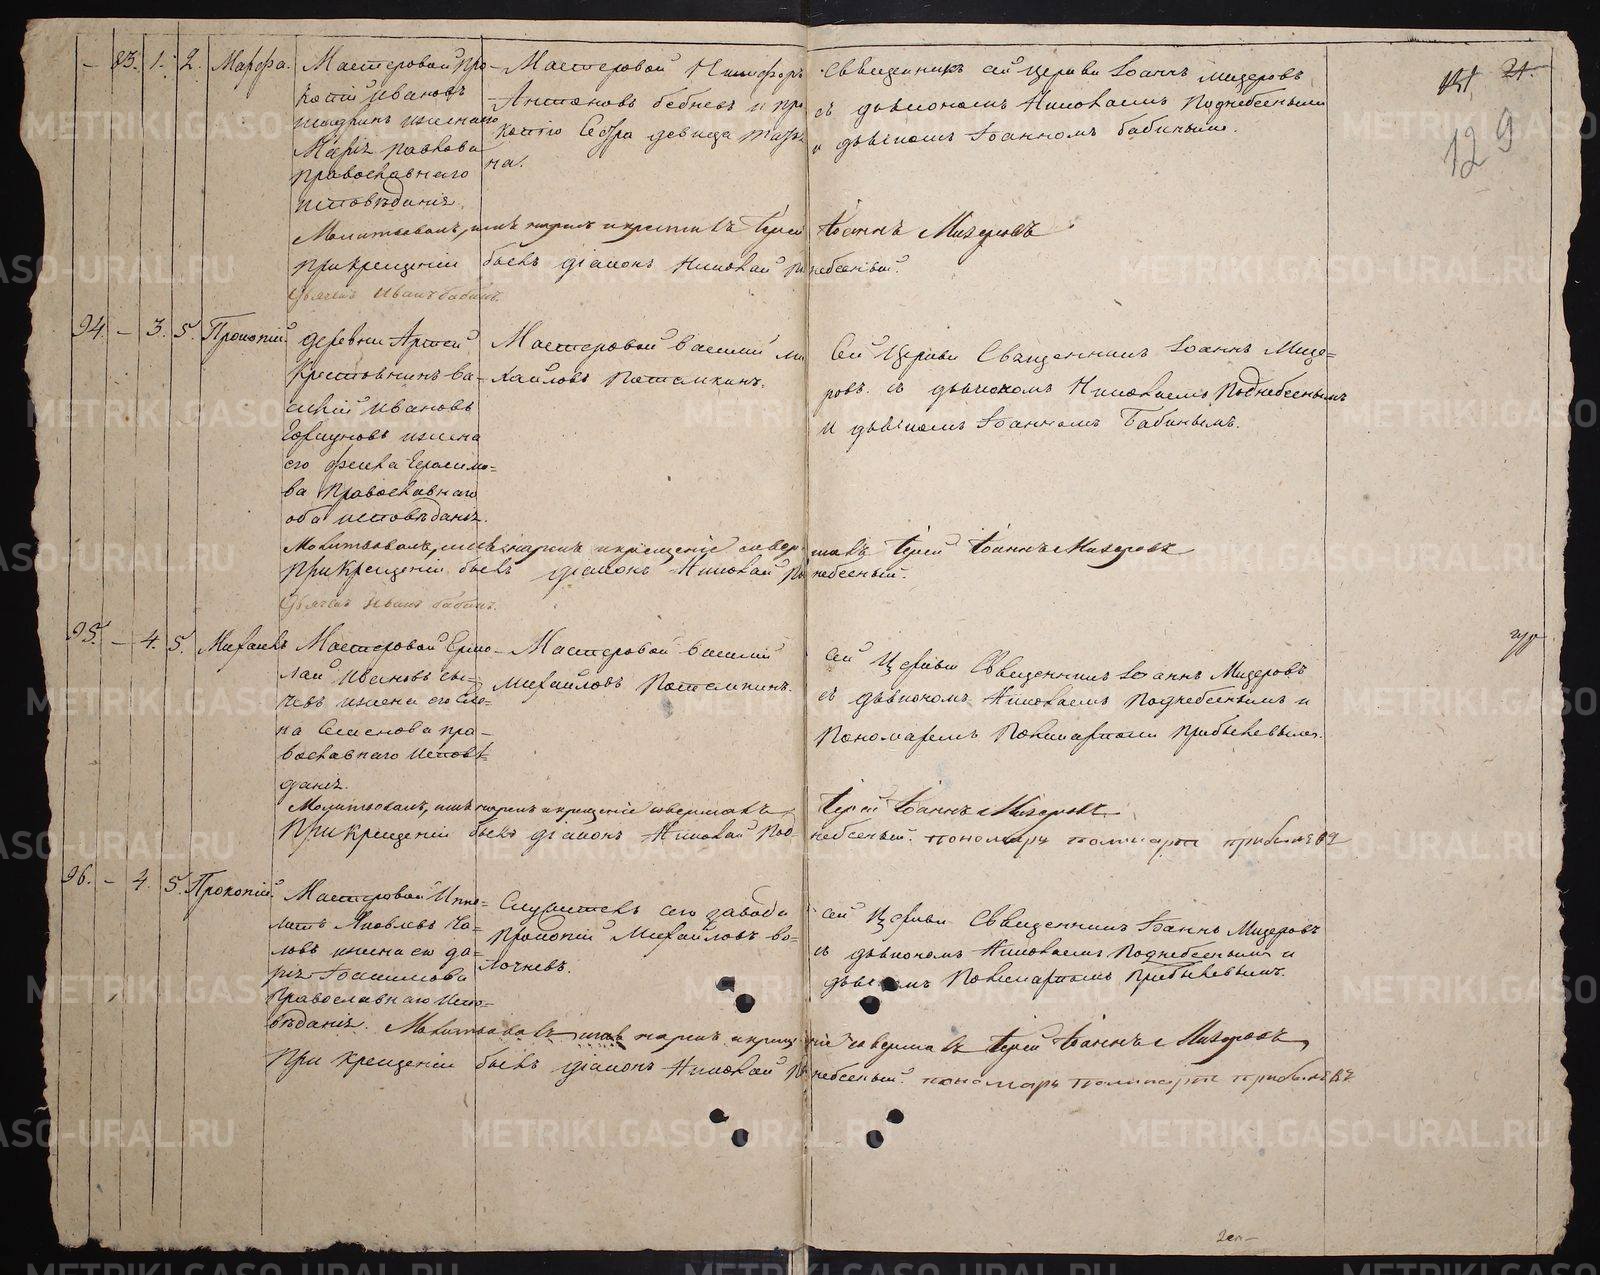 — 83. 1. 2. Марфа. Мастеровой Про-
копий Ивановъ
жена его
Марія Павлова
православнаго
исповѣданія.
Мастеровой Никифоръ
Антоновъ и Про
копію Сестра девица Татья
на.
Священникъ сей Церкви Іоаннъ Мизеровъ
съ дьякономъ Николаемъ Поднебеснымъ
и дьячкомъ Іоанномъ Бабинымъ.
21.
129
Молитвовалъ, имя нарекъ и крестилъ Іерей Іоаннъ Мизеровъ
При крещеніи былъ діаконъ Николай Поднебесный.
Дьячекъ Иванъ Бабинъ.
94. — 3. 5. Прокопій.
деревни Артей
Крестьянинъ Ва-
силій Ивановъ
Горшуновъ жена
его Герасимо-
ва Православнаго
оба исповѣданія.
Мастеровой Василий Ми
хайловъ Потемкинъ.
Сей Церкви Священникъ Іоаннъ Мизе-
ровъ съ дьякономъ Николаемъ Поднебеснымъ
и дьячкомъ Іоанномъ Бабинымъ.
Молитвовалъ, имя нарекъ и крещеніе совершилъ Іерей Іоаннъ Мизеровъ
При крещеніи былъ діаконъ Николай Поднебесный.
Дьячекъ Иванъ Бабинъ.
95. — 4. 5. Михаилъ
Мастеровой Ермо-
лай Ивановъ Сы-
чевъ жена его Еле-
на Семенова пра-
вославнаго исповѣ-
данія.
Мастеровой Василий
Михайловъ Потемкинъ.
Сей Церкви Священникъ Іоаннъ Мизеровъ
съ дьякономъ Николаемъ Поднебеснымъ и
Пономаремъ Поликарпомъ Прибылевымъ.
Молитвовалъ, имя нарекъ и крещеніе совершилъ Іерей Іоаннъ Мизеровъ
При крещеніи былъ діаконъ Николай Поднебесный. пономарь поликарпъ прибылевъ
96. — 4. 5. Прокопій.
Мастеровой Иппо-
литъ Яковлевъ
жена его Да-
рія
Православнаго Испо-
вѣданія.
Служитель сего завода
Прокопій Михайловъ Во-
лочневъ.
Сей Церкви Священникъ Іоаннъ Мизеровъ
съ дьякономъ Николаемъ Поднебеснымъ и
Поликарпомъ Прибылевымъ.
Молитвовалъ имя нарекъ и крещеніе совершилъ Іерей Іоаннъ Мизеровъ
При крещеніи былъ діаконъ Николай Поднебесный. пономарь поликарпъ прибылевъ
METRIKI.GASO-URAL.RU